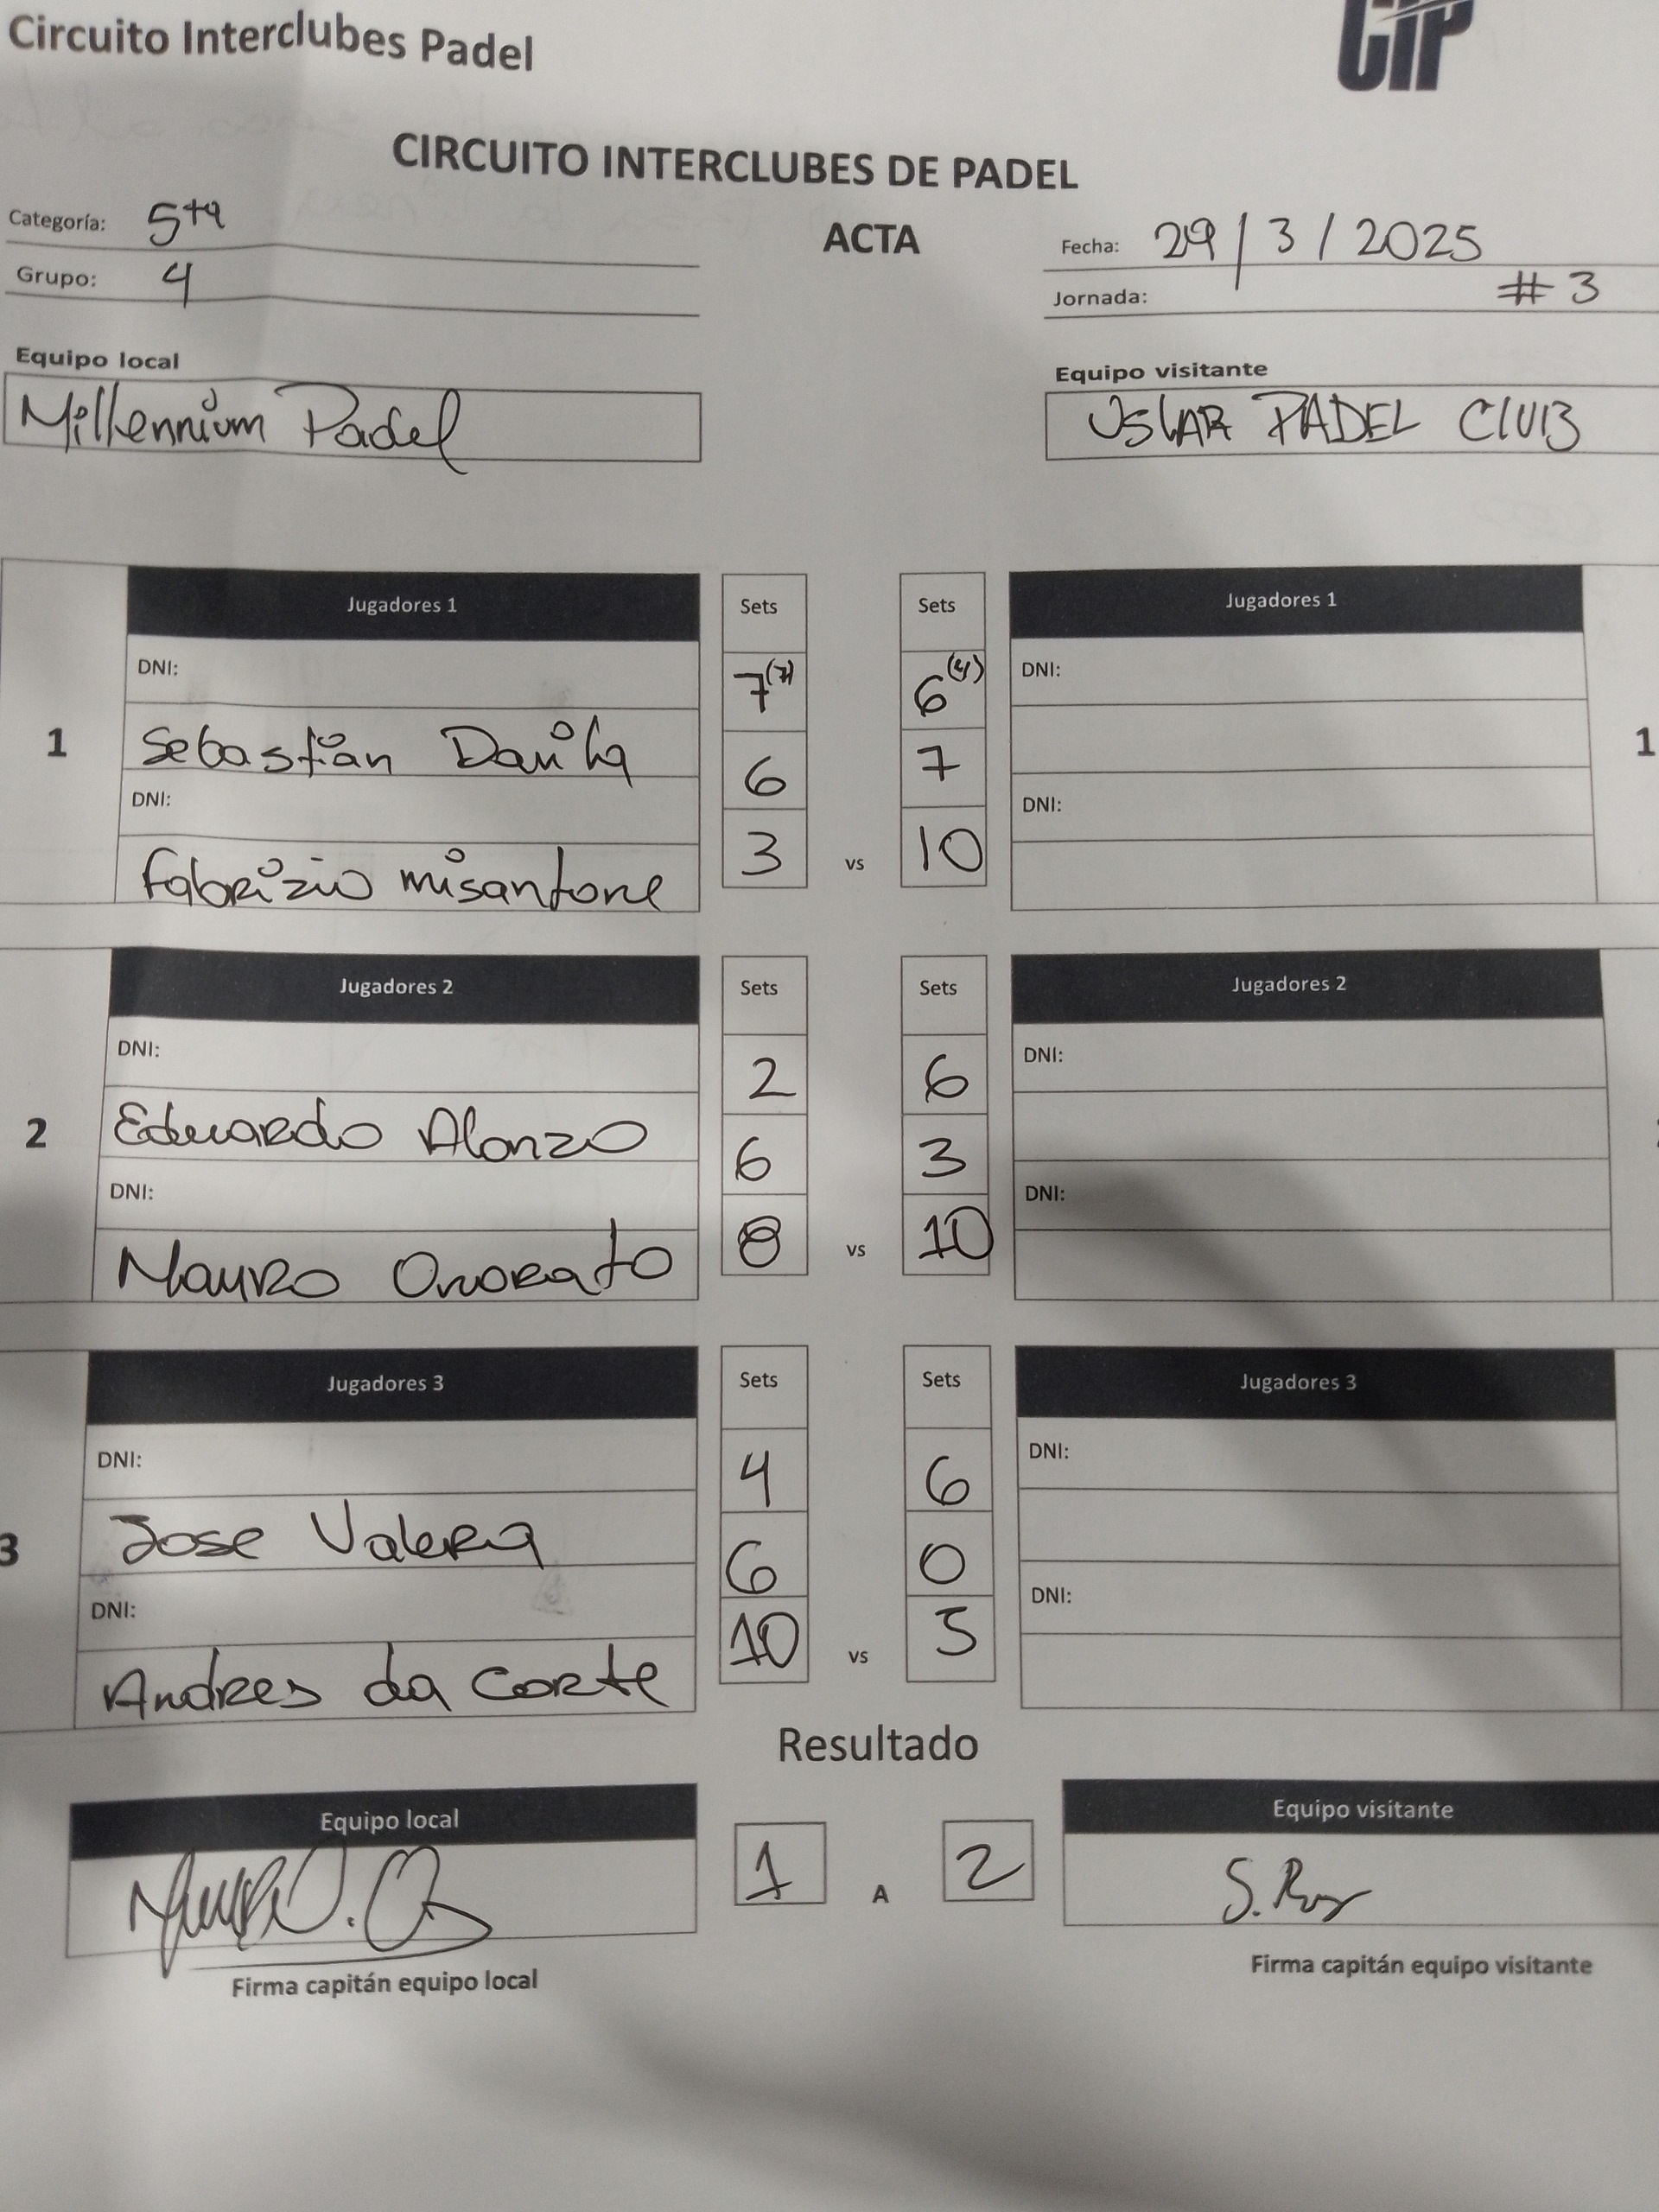 Circuito Interclubes Padel
CIP
CIRCUITO INTERCLUBES DE PADEL
Categoría: 5ta
ACTA
Fecha: 29/3/2025
Grupo: 4
Jornada: #3
Equipo local
Equipo visitante
Millennium Padel
USLAR PADEL ClUB
Jugadores 1
Sets
Sets
Jugadores 1
DNI:
7(7)
6(4)
DNI:
1
Sebastián Davila
6
7
1
DNI:
DNI:
Fabrizio misantone
3
vs
10
Jugadores 2
Sets
Sets
Jugadores 2
DNI:
2
6
DNI:
2
Eduardo Alonzo
6
3
DNI:
DNI:
Mauro Onorato
8
vs
10
Jugadores 3
Sets
Sets
Jugadores 3
DNI:
4
6
DNI:
3
Jose Valera
6
0
DNI:
DNI:
Andres da Corte
10
vs
5
Resultado
Equipo local
Equipo visitante
1
A
2
Firma capitán equipo local
Firma capitán equipo visitante